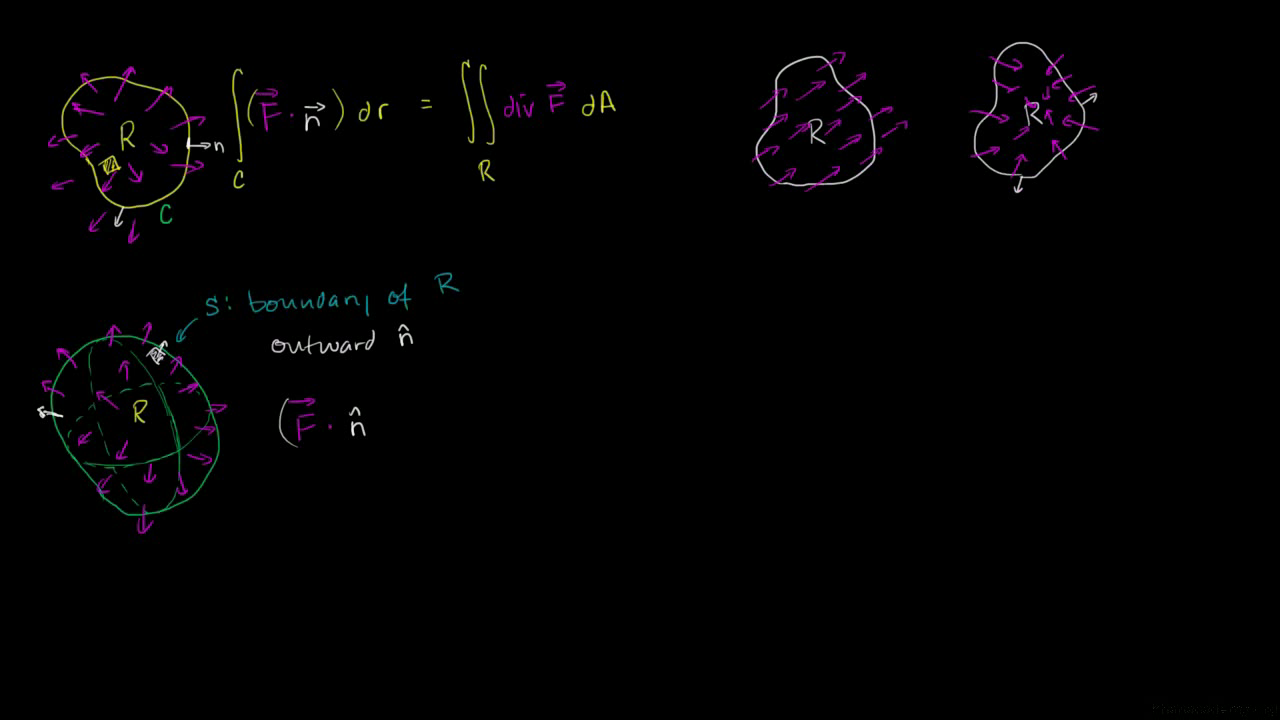 R
n
C
∫ (F⃗ · n⃗) dr = ∫∫ div F⃗ dA
C
R
R
R
S: boundary of R
outward n̂
R
(F⃗ · n̂